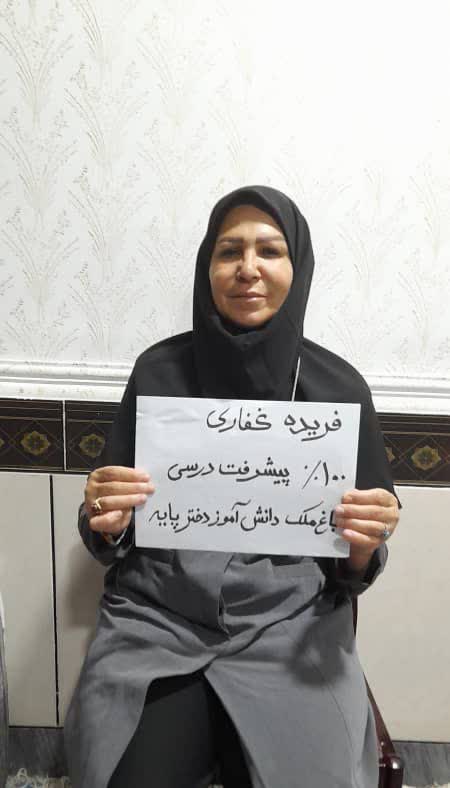 فریده غفاری
۱۰۰٪ پیشرفت درسی
باغ ملک دانش آموز دختر پایه